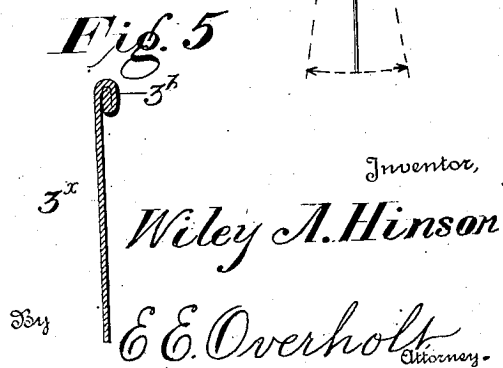 Fig. 5
3ʰ
3ˣ
Inventor,
Wiley A. Hinson
By
E E. Overholt
Attorney.